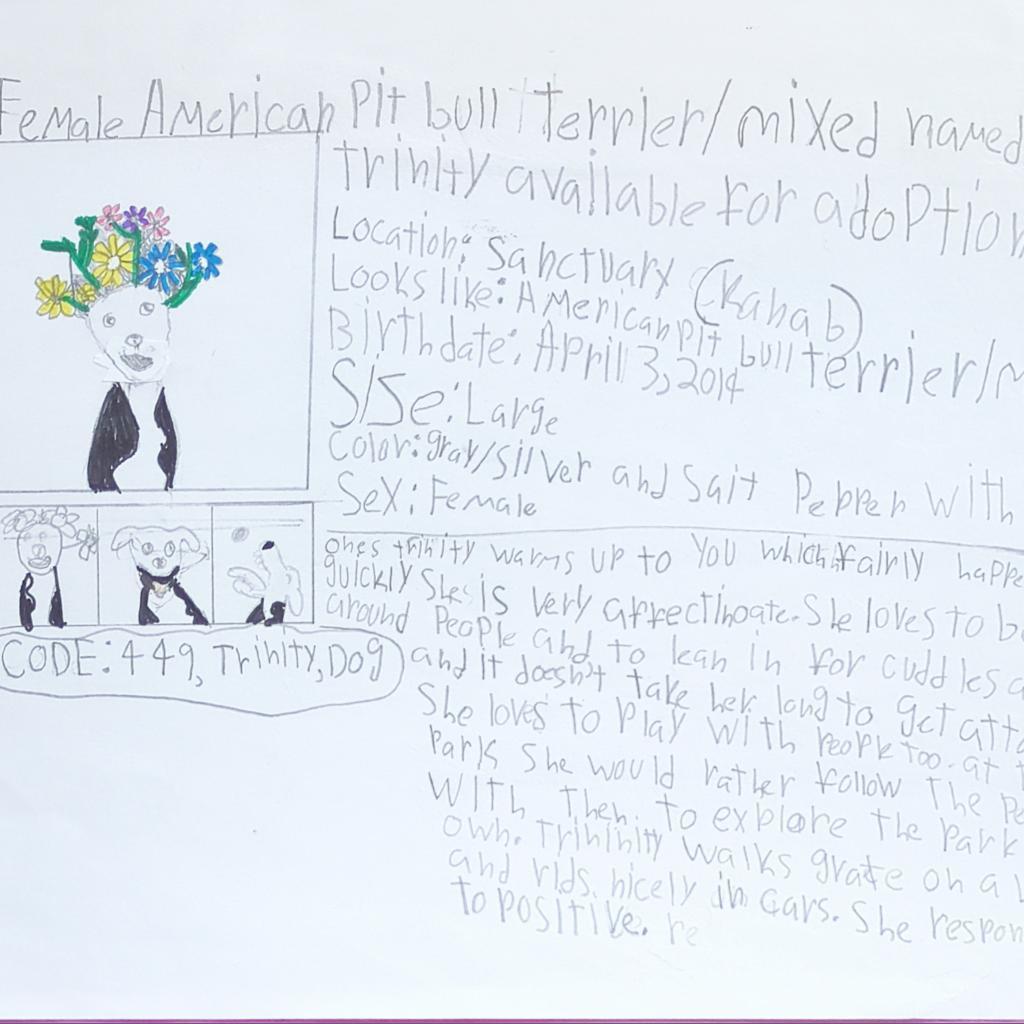 Female American Pit bull terrier/mixed named
trinity available for adoption
Location: Sanctuary (Kanab)
Looks like: American Pit bull terrier/m
Birthdate: April 3, 2014
SiSe: Large
Color: gray/silver and Salt Pepper with
Sex: Female
ones trinity warms up to you which fairly happe
quickly She is very affectinoate. She loves to be
around People and to lean in for cuddles a
and it doesn't take her long to get atta
She loves to play with people too. at t
Park She would rather follow the Pe
with then to explore the Park
own. Trininity walks grate on a l
and rids nicely in cars. She respon
to positive. re
CODE: 449, Trinity, Dog